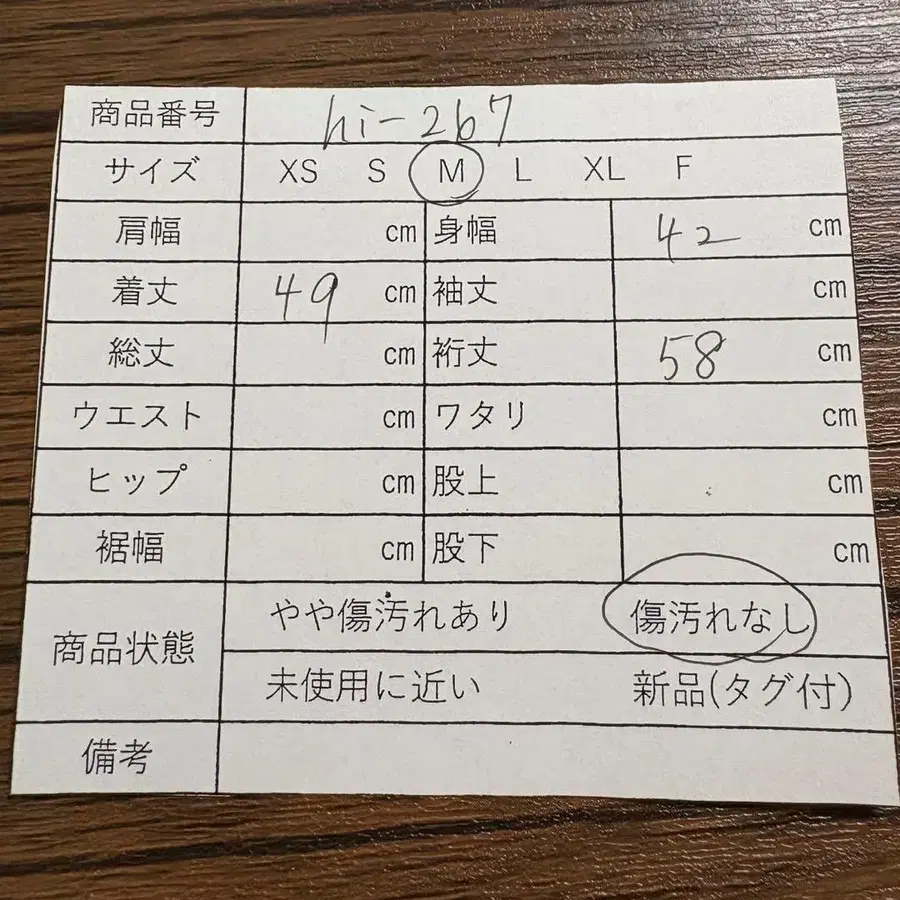 商品番号 hi-267
サイズ XS S M L XL F
肩幅 cm 身幅 42 cm
着丈 49 cm 袖丈 cm
総丈 cm 裄丈 58 cm
ウエスト cm ワタリ cm
ヒップ cm 股上 cm
裾幅 cm 股下 cm
商品状態 やや傷汚れあり 傷汚れなし
未使用に近い 新品(タグ付)
備考